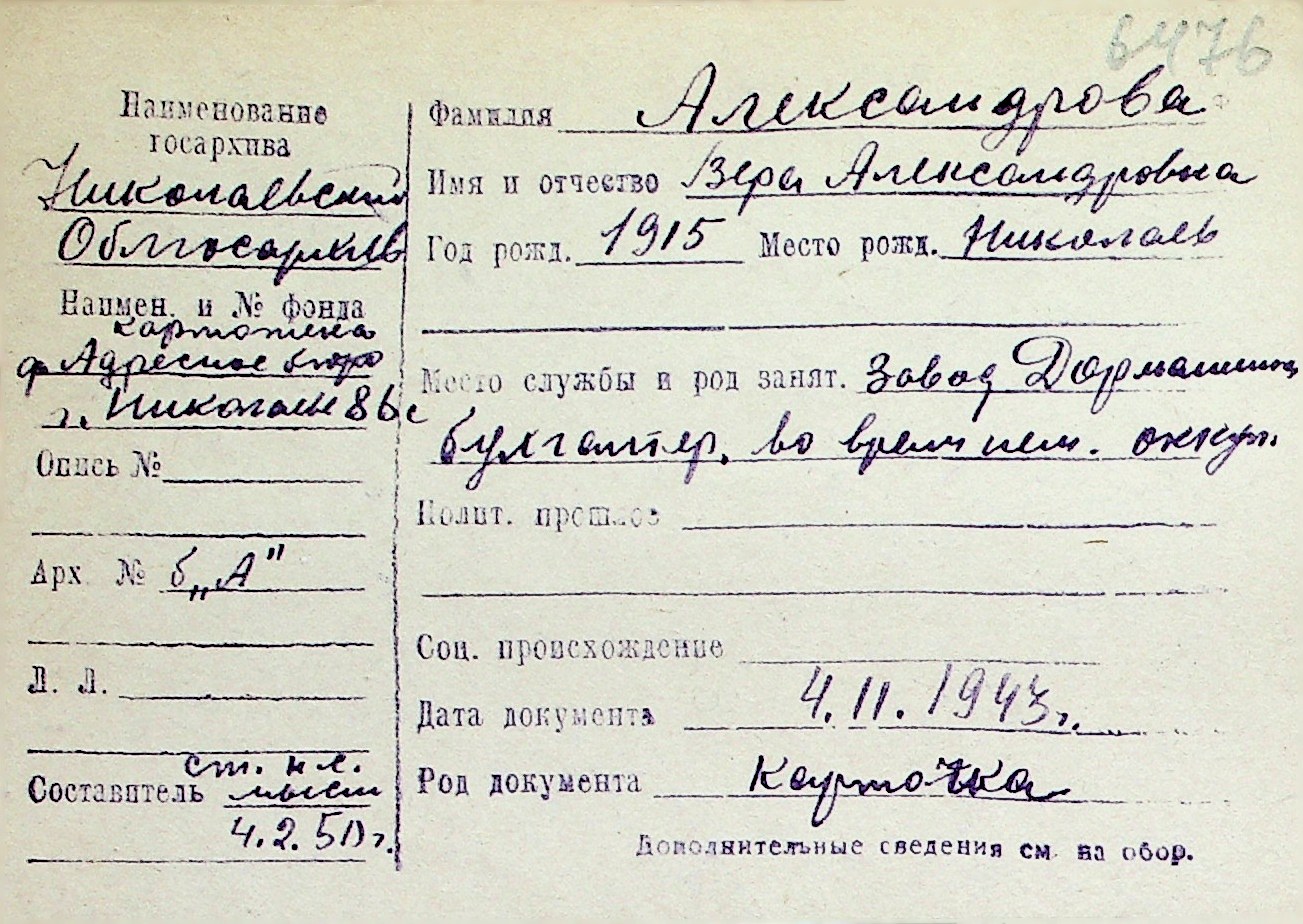 6476
Наименование
госархива
Николаевский
Облгосархив
Наимен. и № фонда
картотека
ф Адресное бюро
г. Николаев
Опись №
Арх № б „А"
Л. Л.
ст. н.с.
Составитель
4.2.50 г.
Фамилия Александрова
Имя и отчество Вера Александровна
Год рожд. 1915 Место рожд. Николаев
Место службы и род занят. Завод Дормашина
бухгалтер, во время нем. оккуп.
Полит. прошлое
Соц. происхождение
Дата документа 4.11.1943 г.
Род документа Карточка
Дополнительные сведения см на обор.